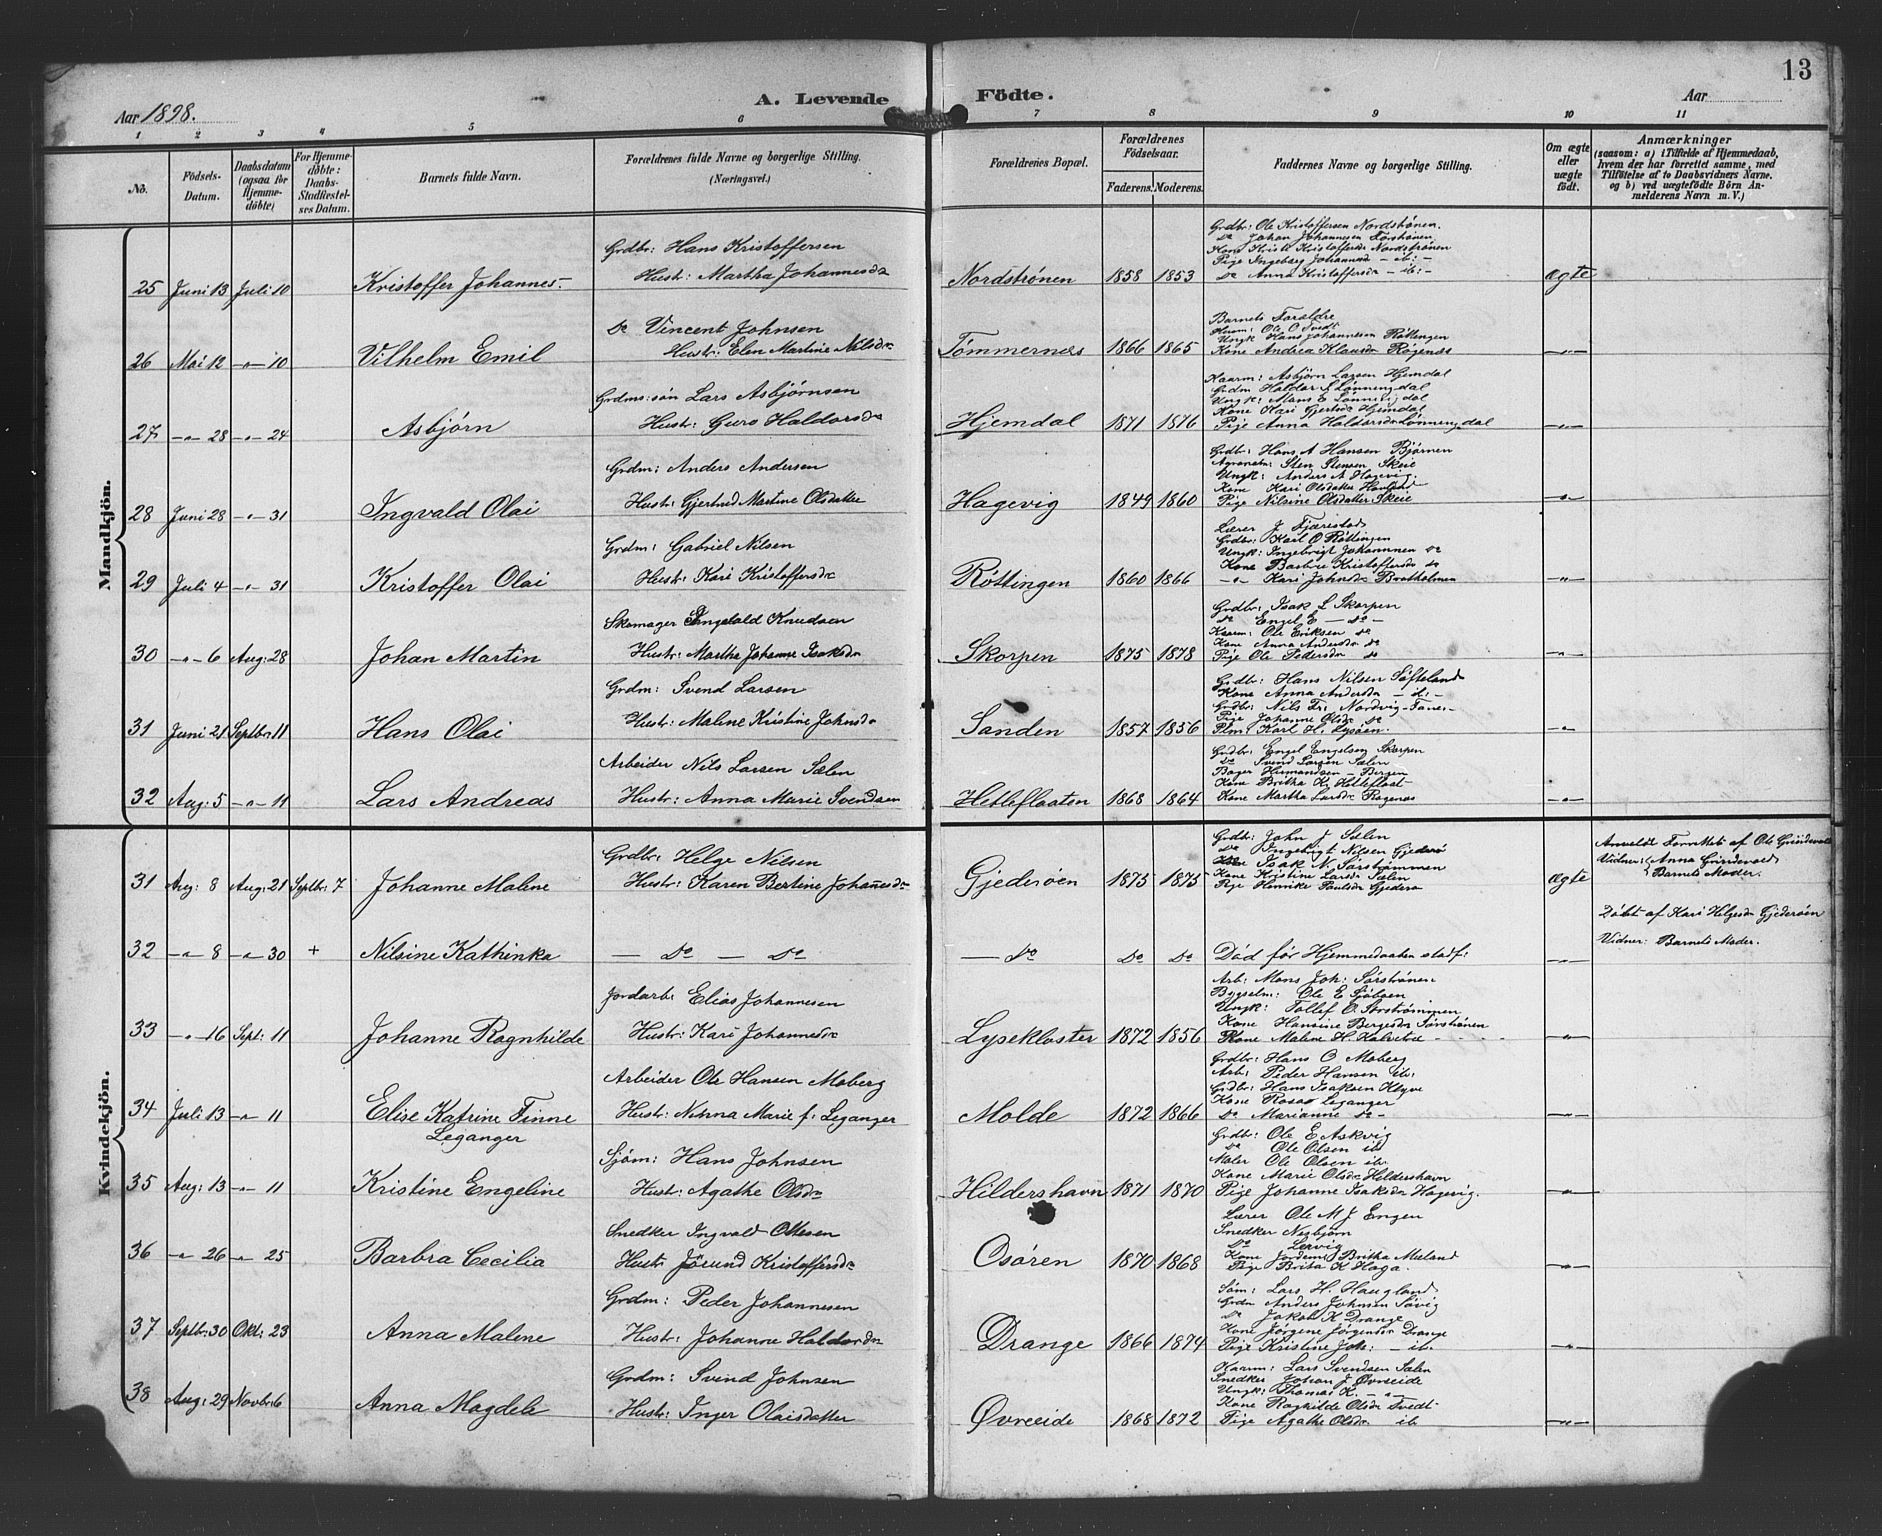 13
Aar 1898.
A. Levende Födte.
Aar
1 2 3 4 5 6 7 8 9 10 11
No.
Födsels-Datum.
Daabsdatum (ogsaa for Hjemmedöbte)
For Hjemmedöbte: Daabs-Stadfæstelses Datum.
Barnets fulde Navn.
Forældrenes fulde Navne og borgerlige Stilling. (Næringsvei.)
Forældrenes Bopæl.
Forældrenes Födselsaar.
Faderens. Moderens.
Faddernes Navne og borgerlige Stilling.
Om ægte eller uægte födt.
Anmærkninger
(saasom: a) i Tilfælde af Hjemmedaab, hvem der har forrettet samme, med Tilföielse af to Daabsvidners Navne, og b) ved uægtefödte Börn Anmelderens Navn m. V.)
Mandkjön.
25 Juni 13 Juli 10 Kristoffer Johannes
Grdbr: Hans Kristoffersen
Hustr: Martha Johannesdr
Nordstrønen 1858 1853
Grdbr: Ole Kristoffersen Nordstrønen.
Do Johan Johannesen
Kone Kristi Kristoffersdr Nordstrønen
Pige Ingeborg Johannesd — ib: —
Do Anna Kristoffersdr — ib: —
ægte
26 Mai 12 —"— 10 Vilhelm Emil
Do Vincent Johnsen
Hustr: Elen Martine Nilsdr
Tømmernæs 1866 1865
Barnets Forældre
Husm: Ole O Tvedt
Ungk: Hans Johannesen Røttingen
Kone Andrea Klausdr Røgenæs
—"—
27 —"— 28 —"— 24 Asbjørn
Grdms: søn Lars Asbjørnsen
Hustr: Guro Haldorsdr
Hjemdal 1871 1876
Kaarm: Asbjørn Larsen Hjemdal
Grdm Haldor L Lønningdal
Ungk: Mons E Lønningdal
Kone Kari Gjertsdr Hjemdal
Pige Anna Haldorsdr Lønningdal
—"—
28 Juni 28 —"— 31 Ingvald Olai
Grdm: Anders Andersen
Hustr: Gjertrud Martine Olsdatter
Hagevig 1849 1860
Grdbr: Hans A Hansen Bjørnen
Agronom: Sten Stensen Skeie
Ungk: Anders A Hagevig.
Kone Kari Olsdatter
Pige Nilsine Olsdatter Skeie
—"—
29 Juli 4 —"— 31 Kristoffer Olai
Grdm: Gabriel Nilsen
Hustr: Kari Kristoffersdr
Røttingen 1860 1866
Lærer J Fjærestad
Grdbr: Karl O Røttingen
Ungk: Ingebrigt Johannnen do
Kone Barbro Kristoffersdr do
—"— Kari Johnsdr Bratholmen
—"—
30 —"— 6 Aug: 28 Johan Martin
Skomager Ingvald Knudsen
Hustr: Martha Johanne Isaksdr
Skorpen 1875 1878
Grdbr: Isak L Skorpen
Do Engel E — do —
Kaarm: Ole Eriksen do
Kone Anna Andersdr do
Pige Ole Pedersdr do
—"—
31 Juni 21 Septbr: 11 Hans Olai
Grdm: Svend Larsen
Hustr: Maline Kristine Johnsdr
Sanden 1857 1856
Grdbr: Hans Nilsen Søfteland
Kone Anna Andersdr — ib: —
Grdbr: Nils Fr: Nordvig
Pige Johanne Olsdr do
Plm: Karl H. Lysøen.
—"—
32 Aug: 5 —"— 11 Lars Andreas
Arbeider Nils Larsen Sælen
Hustr: Anna Marie Svendsen
Hetleflaaten 1868 1864
Grdbr: Engel Engelsen Skorpen
Do Svend Larsen Sælen
Bager Hermandsen — Bergen
Kone Britha K. Hetleflaat
Kone Martha Larsdr Røgenæs
—"—
Kvindekjön.
31 Aug: 8 Aug: 21 Septbr: 7 Johanne Malene
Grdbr: Helge Nilsen
Hustr: Karen Bertine Johannesdr
Gjederøen 1875 1875
Grdbr: John J Sælen
Do Ingebrigt Nilsen Gjederø
Isak N. Sørstrømmen
Kone Kristine Larsdr Sælen
Pige Hinrike Paulsdr Gjederø
ægte
Anmeldt Forrettet af Ole Grindevold
Vidner: Anna Grindevold
Barnets Moder.
32 —"— 8 —"— 30 + Nilsine Kathinka
— Do — Do
— Do Do Do
Död før Hjemmedaaben stadf:
—"—
Döbt af Kari Helgesdr Gjederøen
Vidner: Barnets Moder.
33 —"— 16 Sept: 11 Johanne Ragnhilde
Jordarb: Elias Johannesen
Hustr: Kari Johannesdr
Lysekloster 1872 1856
Arb: Mons Joh: Sørstrønen
Bygselm: Ole E Sjøbøen
Ungk: Tollef O. Sørstrømmen
Kone Hansine Bergesdr Sørstrønen
Kone Malene H. Halvetræ
—"—
34 Juli 13 —"— 11 Elise Katrine Finne Leganger
Arbeider Ole Hansen Moberg
Hustr: Ninna Marie f. Leganger
Molde 1872 1866
Grdbr: Hans O Moberg
Arb: Peder Hansen ib:
Grdbr: Hans Isaksen Klyve
Kone Rosa Leganger
Do Marianne do —
—"—
35 Aug: 13 —"— 11 Kristine Engeline
Sjøm: Hans Johnsen
Hustr: Agathe Olsdr
Hildershavn 1871 1870
Grdbr: Ole E Askvig
Do Ole Olsen ib
Maler Ole Olsen ib.
Kone Marie Olsdr Hildershavn
Pige Johanne Isaksdr Hagevig.
—"—
36 —"— 26 —"— 25 Barbra Cecilia
Snedker Ingvald Ottesen
Hustr Jørund Kristoffersdr
Osøren 1870 1868
Lærer Ole M J Engen
Snedker Nesbjørn
Do Lervig
Kone Jordem: Britha Mæland
Pige Brita K Haga.
—"—
37 Septbr: 30 Okt: 23 Anna Malene
Grdm: Peder Johannesen
Hustr: Johanne Haldordr
Drange 1866 1874
Søm: Lars H. Haugland
Grdm Anders Johnsen Søvig
Do Jakob K Drange
Kone Jørgene Jørgensdr Drange
Pige Kristine Joh: — ib.
—"—
38 Aug: 29 Novbr: 6 Anna Magdele
Grdm: Svend Johnsen
Hustr: Inger Olaisdatter
Øvreeide 1868 1872
Kaarm: Lars Svendsen Sælen
Snedker Johan J Øvreeide
Ungk: Thomas K. — " —
Kone Raghilde Olsdr Tvedt
Pige Agathe Olsdr ib
—"—